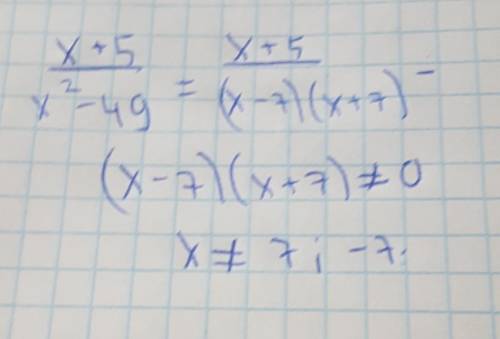 (x+5)/(x²-49) = (x+5)/((x-7)(x+7)) -
(x-7)(x+7)≠0
x≠ 7; -7.